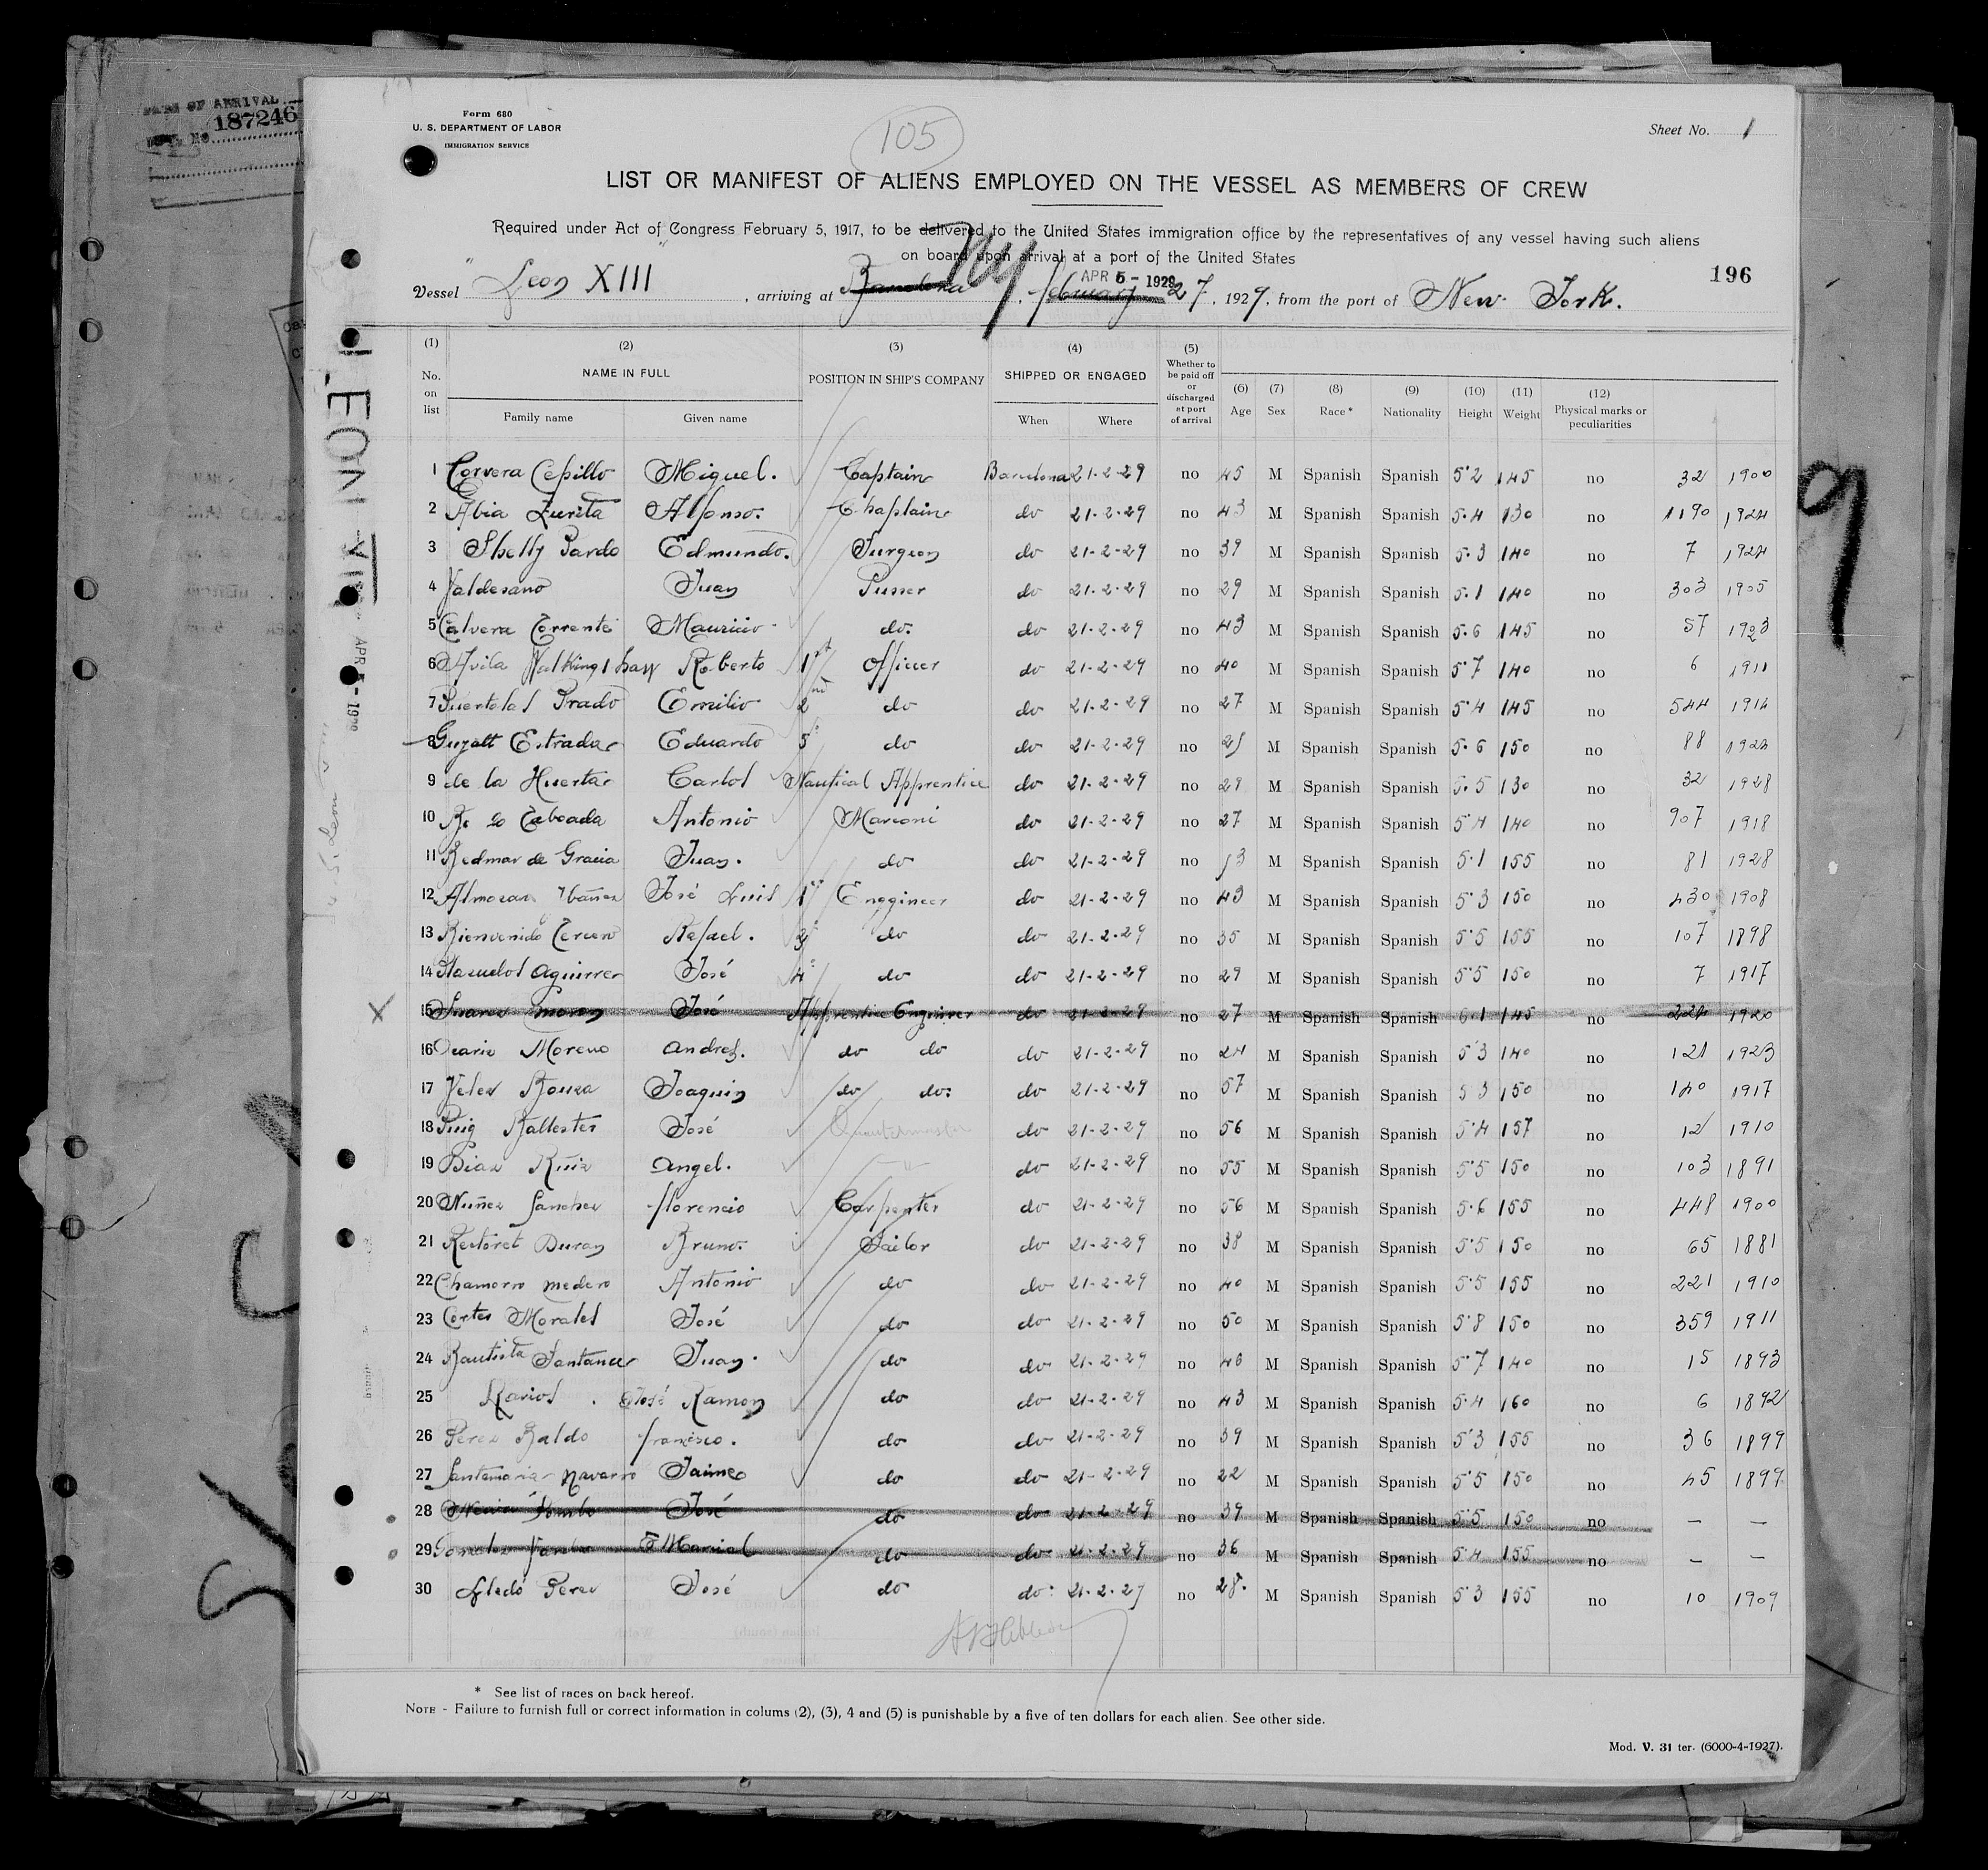 187246
Form 680
U. S. DEPARTMENT OF LABOR
IMMIGRATION SERVICE
105
Sheet No. 1
LIST OR MANIFEST OF ALIENS EMPLOYED ON THE VESSEL AS MEMBERS OF CREW
Required under Act of Congress February 5, 1917, to be delivered to the United States immigration office by the representatives of any vessel having such aliens
on board upon arrival at a port of the United States
NY
APR 5 - 1929
196
Vessel Leon XIII, arriving at Barcelona, february 27, 1929, from the port of New York.
LEON XIII
APR 5 - 19
9
(1) (2) (3) (4) (5)
No. on list NAME IN FULL POSITION IN SHIP'S COMPANY SHIPPED OR ENGAGED Whether to be paid off or discharged at port of arrival (6) Age (7) Sex (8) Race* (9) Nationality (10) Height (11) Weight (12) Physical marks or peculiarities
Family name Given name When Where
1 Corvera Cepillo Miguel. Captain Barcelona 21-2-29 no 45 M Spanish Spanish 5'2 145 no 32 1900
2 Abia Zurita Alfonso. Chaplain do 21-2-29 no 43 M Spanish Spanish 5.4 130 no 1190 1924
3 Shelly Pardo Edmundo. Surgeon do 21-2-29 no 39 M Spanish Spanish 5.3 140 no 7 1924
4 Juan Purser do 21-2-29 no 29 M Spanish Spanish 5.1 140 no 303 1905
5 Calvera Torrente Mauricio do. do 21-2-29 no 43 M Spanish Spanish 5.6 145 no 57 1923
6 Avila Roberto 1st Officer do 21-2-29 no 40 M Spanish Spanish 5'7 140 no 6 1911
7 Prado Emilio 2nd do do 21-2-29 no 27 M Spanish Spanish 5'4 145 no 544 1914
8 Estrada Eduardo do do 21-2-29 no M Spanish Spanish 5.6 150 no 88
9 de la Huerta Carlos Nautical Apprentice do 21-2-29 no M Spanish Spanish 5.5 130 no 32 1928
10 Taboada Antonio Marconi do 21-2-29 no 27 M Spanish Spanish 5'4 140 no 907 1918
11 Redmar de Gracia Juan. do do 21-2-29 no M Spanish Spanish 5.1 155 no 81 1928
12 Ibañez José Luis 1st Engineer do 21-2-29 no 43 M Spanish Spanish 5'3 150 no 430 1908
13 Bienvenido Tercero Rafael. do do 21-2-29 no 35 M Spanish Spanish 5'5 155 no 107 1898
14 Aguirre José 4 do do 21-2-29 no 29 M Spanish Spanish 5'5 150 no 7 1917
X 15 Suarez Moron José Apprentice Engineer do 21-2-29 no 27 M Spanish Spanish 145 no 224 1920
16 Moreno Andres. do do do 21-2-29 no 24 M Spanish Spanish 5'3 140 no 121 1923
17 Velez Bouza Joaquin do do. do 21-2-29 no 57 M Spanish Spanish 5 3 150 no 140 1917
18 Puig Ballester José Quartermaster do 21-2-29 no 56 M Spanish Spanish 5'4 157 no 12 1910
19 Diaz Ruiz Angel. do 21-2-29 no 55 M Spanish Spanish 5'5 150 no 103 1891
20 Nuñez Sanchez florencio Carpenter do 21-2-29 no 56 M Spanish Spanish 5.6 155 no 448 1900
21 Restoret Duran Bruno. Sailor do 21-2-29 no 38 M Spanish Spanish 5'5 150 no 65 1881
22 Chamorro medero Antonio do do 21-2-29 no 40 M Spanish Spanish 5'5 155 no 221 1910
23 Cortes Morales José do do 21-2-29 no 50 M Spanish Spanish 5'8 150 no 359 1911
24 Bautista Santana Juan. do do 21-2-29 no 46 M Spanish Spanish 5'7 140 no 15 1893
25 José Ramon do do 21-2-29 no 43 M Spanish Spanish 5.4 160 no 6 1892
26 Perez Baldo francisco. do do 21-2-29 no 39 M Spanish Spanish 5'3 155 no 36 1899
27 Santamaria Navarro Jaime do do 21-2-29 no 22 M Spanish Spanish 5'5 150 no 45 1899
28 José do do 21-2-29 no 39 M Spanish Spanish 5'5 150 no — —
29 Marcial do do 21-2-29 no 36 M Spanish Spanish 5'4 155 no — —
30 Lledó Perez José do do. 21-2-29 no 28. M Spanish Spanish 5'3 155 no 10 1909
* See list of races on back hereof.
NOTE - Failure to furnish full or correct information in colums (2), (3), 4 and (5) is punishable by a five of ten dollars for each alien. See other side.
Mod. V. 31 ter. (6000-4-1927).